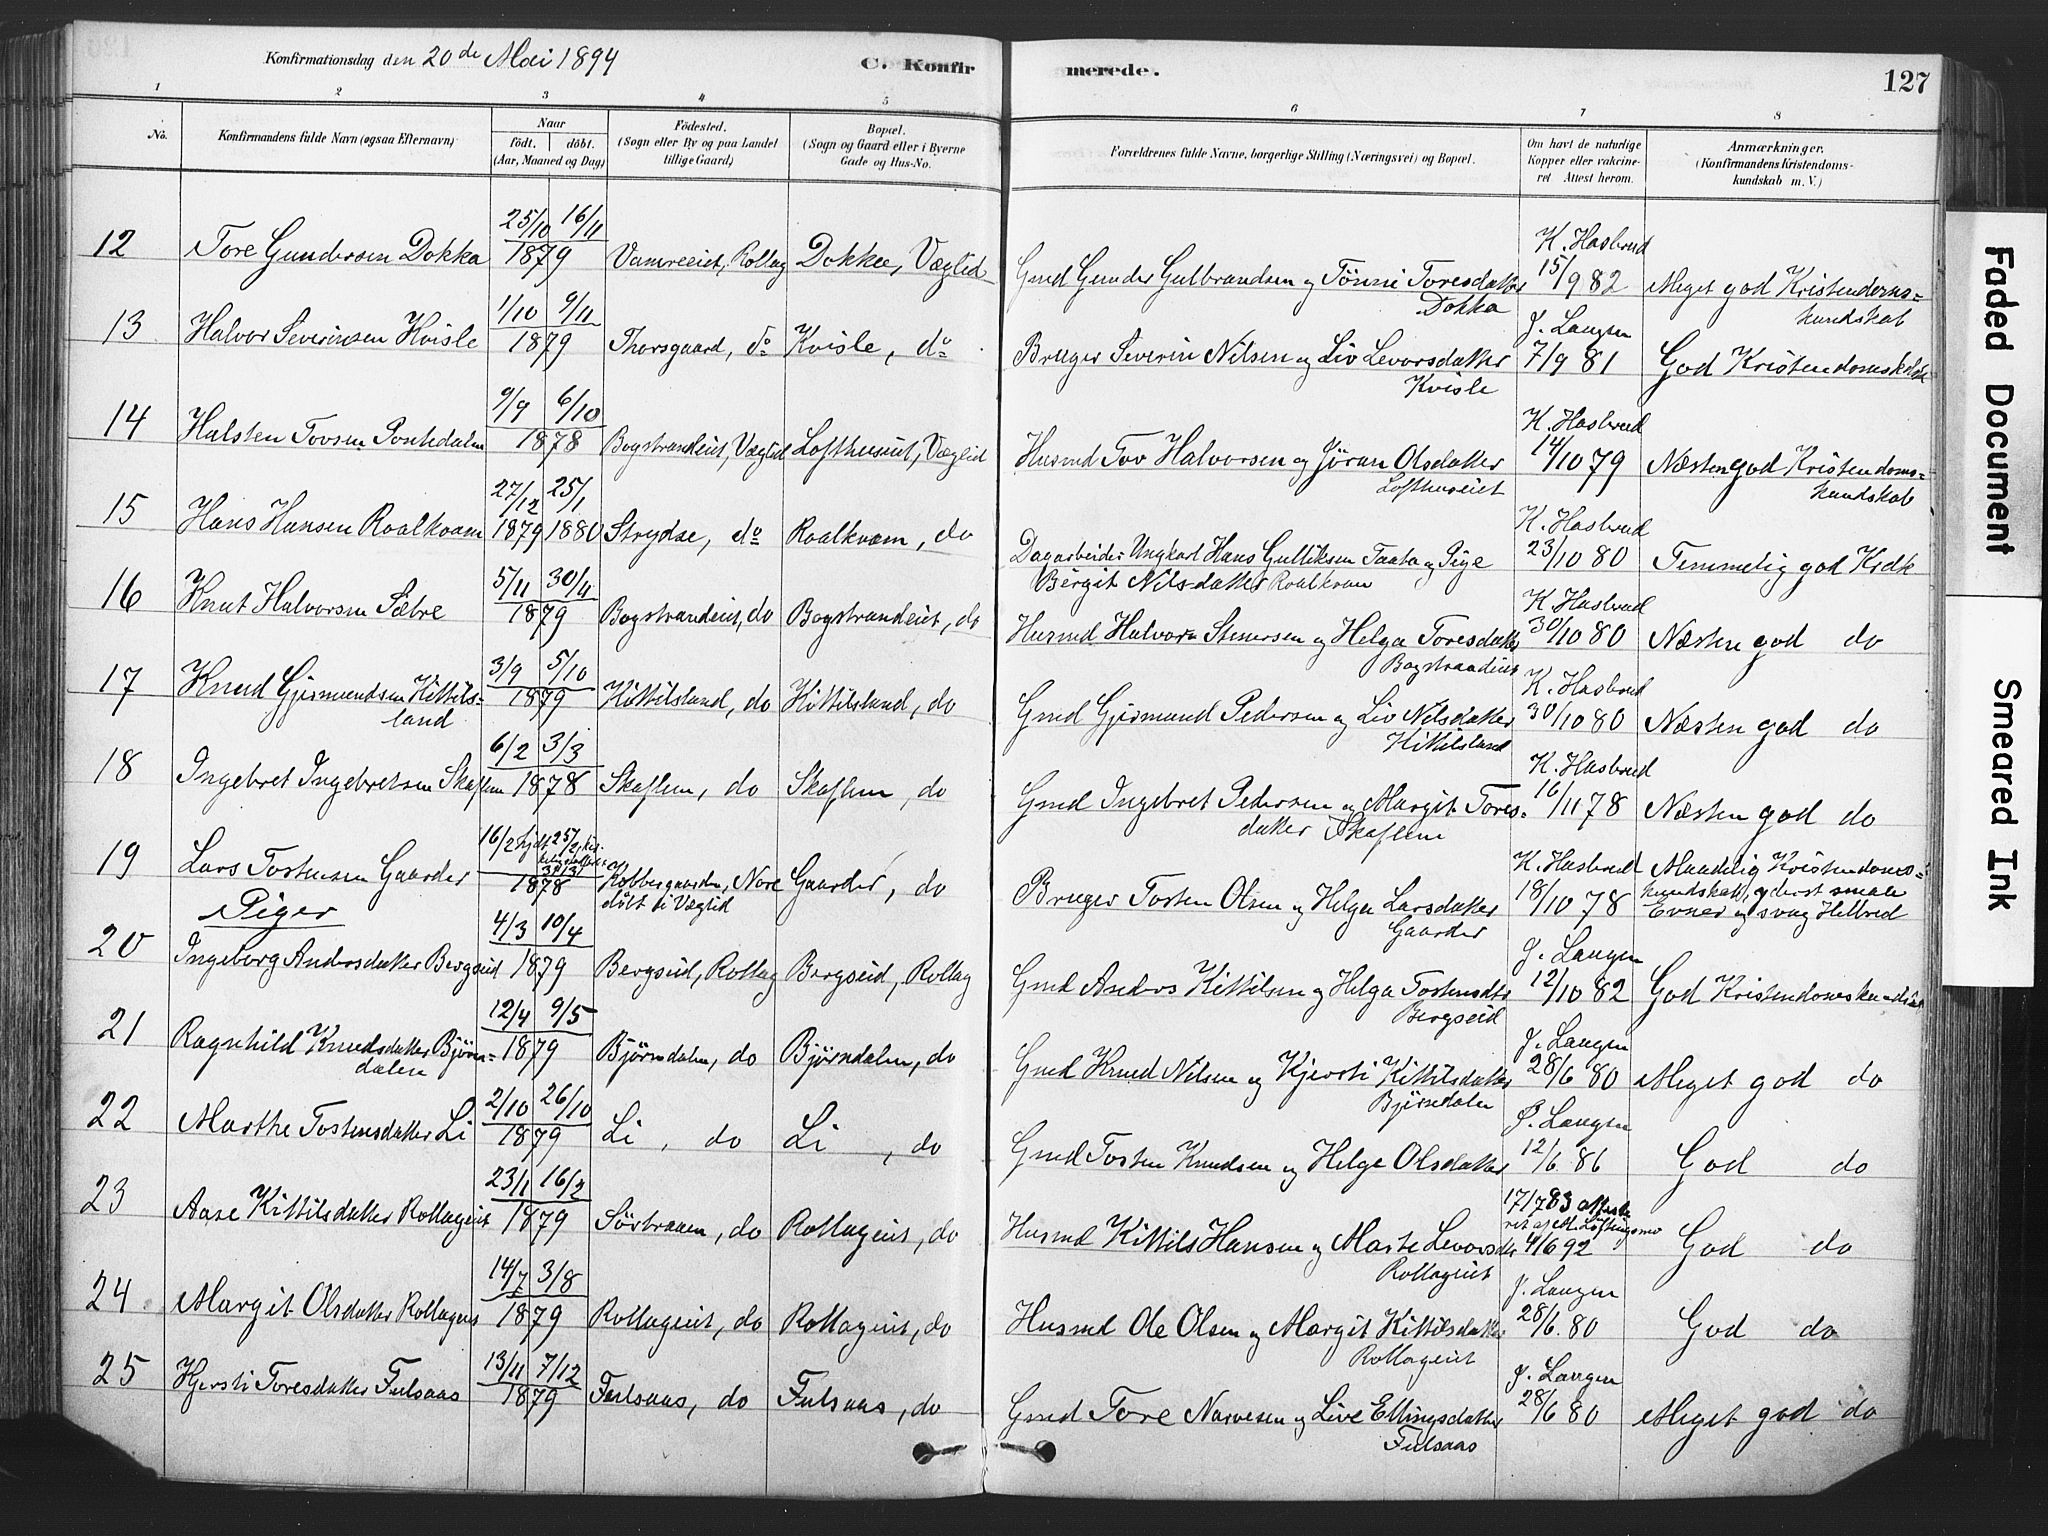 Konfirmationsdag den 20de Mai 1894
C. Konfirmerede.
127
1 2 3 4 5 6 7 8
No.
Konfirmandens fulde Navn (ogsaa Efternavn)
Naar
födt. döbt.
(Aar, Maaned og Dag)
Födested.
(Sogn eller By og paa Landet
tillige Gaard)
Bopæl.
(Sogn og Gaard eller i Byerne
Gade og Hus-No.
Forældrenes fulde Navne, borgerlige Stilling (Næringsvei) og Bopæl.
Om havt de naturlige
Kopper eller vakcine-
ret Attest herom.
Anmærkninger.
(Konfirmandens Kristendoms-
kundskab m. V.)
12 Tore Gundersen Dokka 25/10 16/11 1879 Rollag Dokka, Væglid
Gmd Gunder Gulbrandsen og Tönni Toresdatter
Dokka
K. Hasbrud
15/9 82
Meget god Kristendoms-
kundskab
13 Halvor Severinsen Kvisle 1/10 9/11 1879 Thorsgaard, do Kvisle, do
Bruger Severin Nilsen og Liv Levorsdatter
Kvisle
J. Laugen
7/9 81
God
14 Halsten Tovsen 9/9 6/10 1878 Bogstrandeiet, Væglid Lofthuseiet, Væglid
Husmd Tov Halvorsen og Jöran Olsdatter
Lofthuseiet
K. Hasbrud
14/10 79
Næsten god Kristendoms-
kundskab
15 Hans Hansen Roalkvam 27/12 25/1 1879 1880 Strydse, do Roalkvam, do
Dagarbeider Ungkarl Hans Gulliksen Taata og Pige
Bergit Nilsdatter Roalkvam
K. Hasbrud
23/10 80
Temmelig god Krdk
16 Knut Halvorsen Sæbre 5/11 30/11 1879 Bogstrandeiet, do Bogstrandeiet, do
Husmd Halvor Stenersen og Helga Toresdatter
Bogstrandeiet
K. Hasbrud
30/10 80
Næsten god do
17 Knud Gjermundsen Kittils-
land
3/9 5/10 1879 Kittilsland, do Kittilsland, do
Gmd Gjermund Pedersen og Liv Nilsdatter
Kittilsland
K. Hasbrud
30/10 80
Næsten god do
18 Ingebret Ingebretsen Skaflem 6/2 3/3 1878 Skaflem, do Skaflem, do
Gmd Ingebret Pedersen og Margit Tores-
datter Skaflem
K. Hasbrud
16/11 78
Næsten god do
19 Lars Torstensen Gaarder 16/2 1878 Kobbergaarden, Nore Gaarder, do
döbt i Væglid
Bruger Torsten Olsen og Helga Larsdatter
Gaarder
K. Hasbrud
18/10 78
Maadelig Kristendoms-
kundskab, yderst smaa
Evner og svag Helbred
Piger
20 Ingeborg Andersdatter Bergseid 4/3 10/4 1879 Bergseid, Rollag Bergseid, Rollag
Gmd Anders Kittilsen og Helga Torstensdtr
Bergseid
J. Laugen
12/10 82
God Kristendomskundskab
21 Ragnhild Knudsdatter Björn-
dalen
12/4 9/5 1879 Björndalen, do Björndalen, do
Gmd Knud Nilsen og Kjersti Kittilsdatter
Björndalen
J. Laugen
28/6 80
Meget god do
22 Marthe Tostensdatter Li 2/10 26/10 1879 Li, do Li, do
Gmd Tosten Knudsen og Helge Olsdatter
J. Laugen
12/6 86
God do
23 Aase Kittilsdatter Rollageiet 23/1 16/2 1879 Sörbraaen, do Rollageiet, do
Husmd Kittils Hansen og Marte Levorsdtr
Rollageiet
17/7 83
4/6 92
God do
24 Margit Olsdatter Rollageiet 14/7 3/8 1879 Rollageiet, do Rollageiet, do
Husmd Ole Olsen og Margit Kittilsdatter
Rollageiet
J. Laugen
28/6 80
God do
25 Kjersti Toresdatter Fulsaas 13/11 7/12 1879 Fulsaas, do Fulsaas, do
Gmd Tore Narvesen og Live Ellingsdatter
Fulsaas
J. Laugen
28/6 80
Meget god do
Faded Document
Smeared Ink